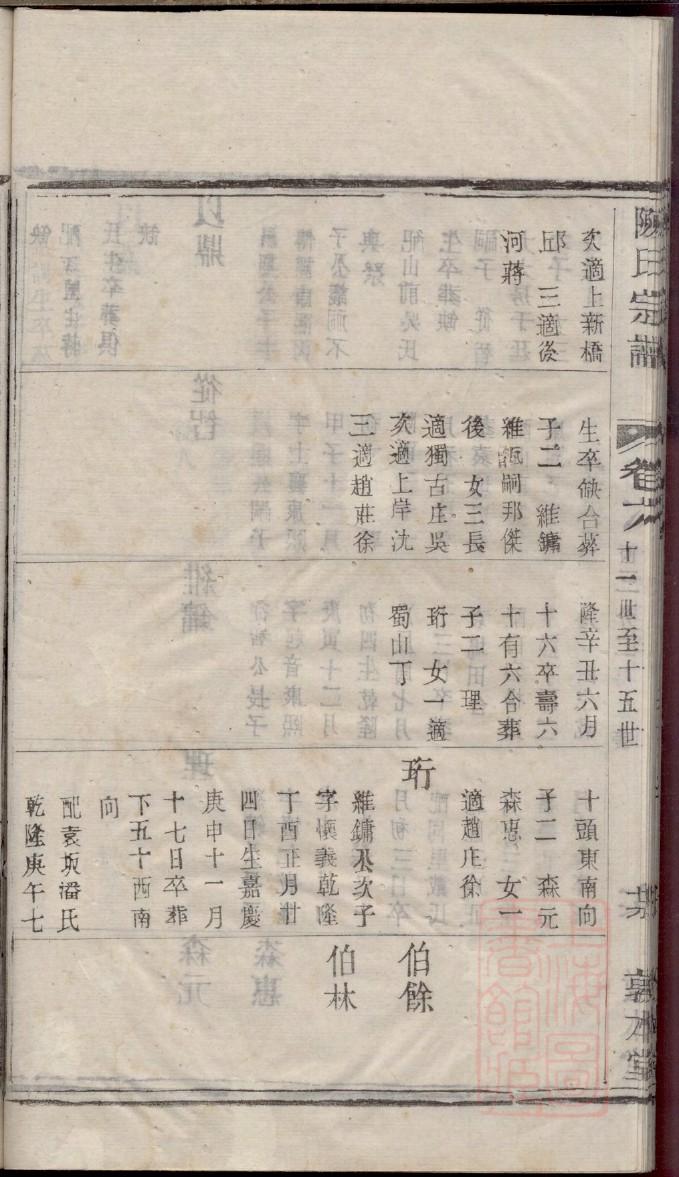 陳氏宗譜
卷六
十二世至十五世
敦本堂
次適上新橋
邱 三適後
河蔣
生卒缺合葬
子二 維鏞
維瓻嗣邦傑
後 女三長
適獨古庄吳
次適上岸沈
三適趙莊徐
隆辛丑六月
十六卒壽六
十有六合葬
子二 理
珩 女一適
蜀山丁
十頭東南向
子二 森元
森惠 女一
適趙庄徐
珩
維鏞公次子
字慎義乾隆
丁酉正月廿
四日生嘉慶
庚申十一月
十七日卒葬
下五十西南
向
配袁坂潘氏
乾隆庚午七
伯餘
伯林